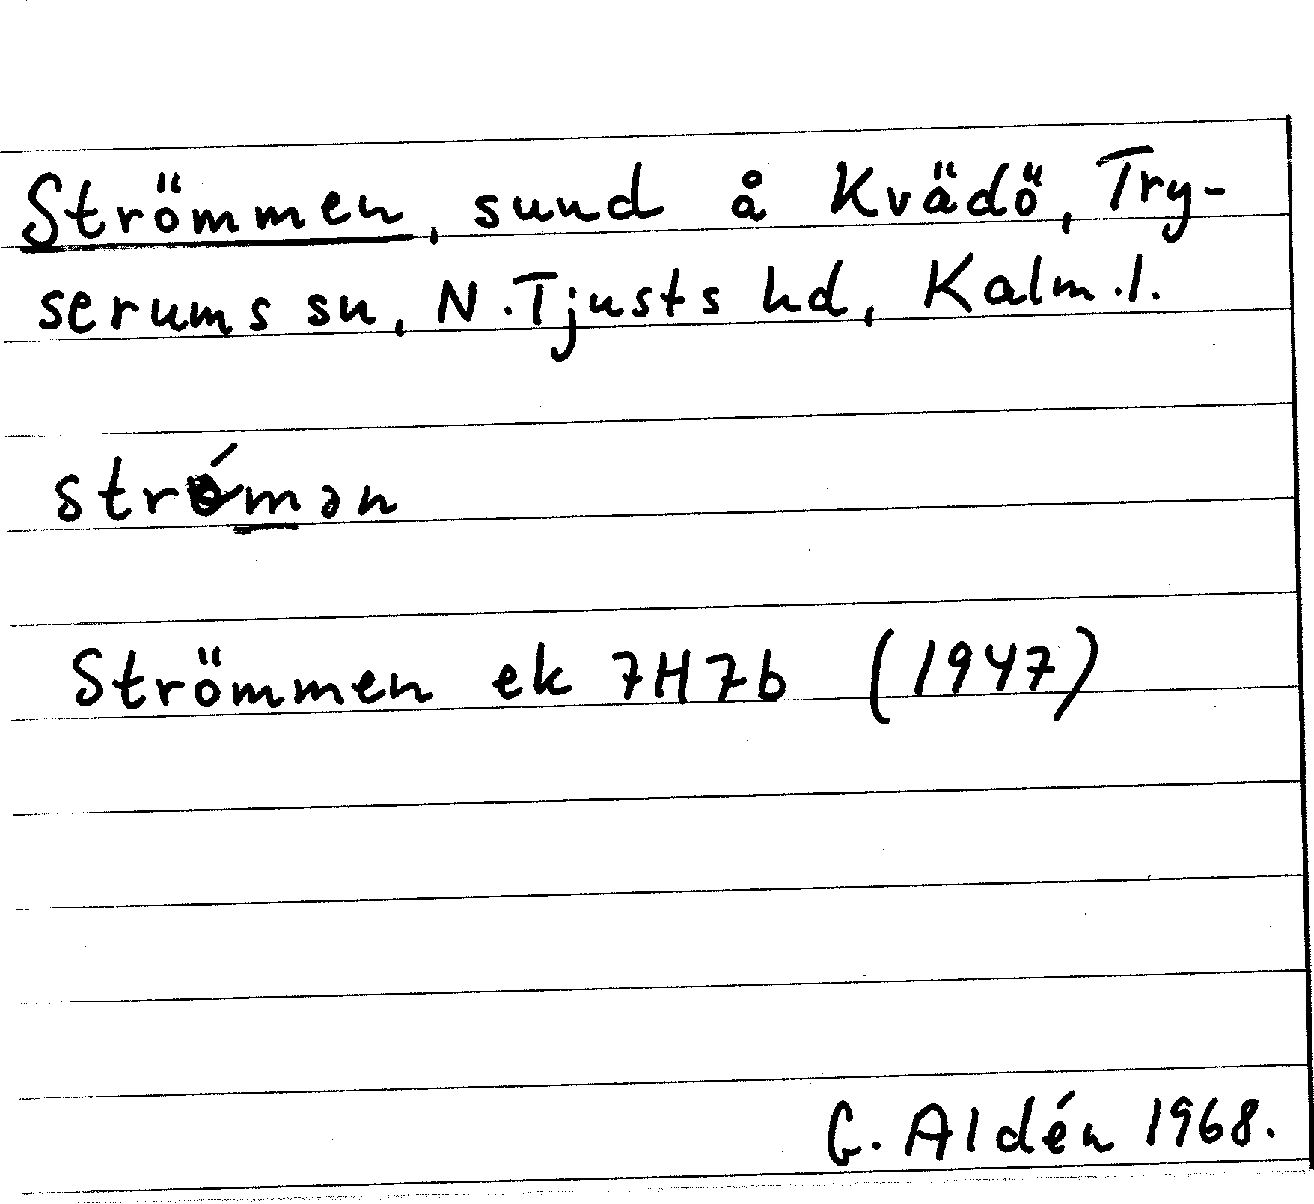 Strömmen, sund å Kvädö, Try-
serums sn, N. Tjusts hd, Kalm. l.
strǿmən
Strömmen ek 7H7b (1947)
G. Aldén 1968.